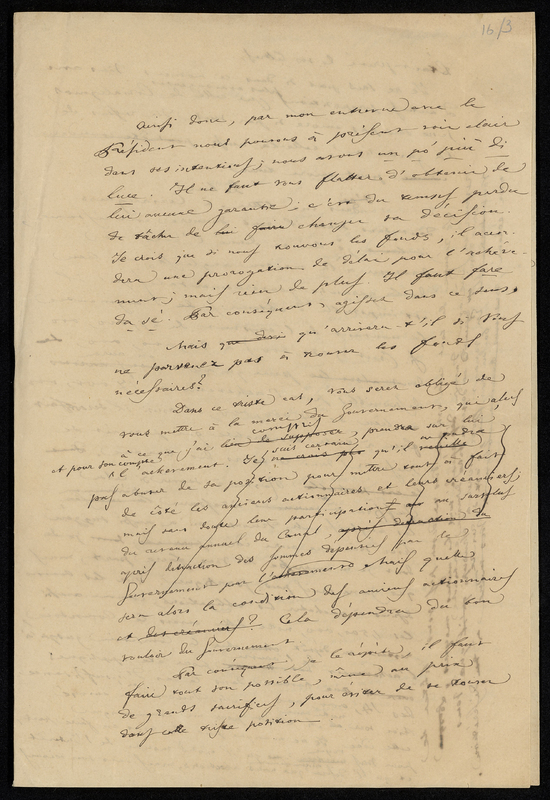 16/3
Ainsi donc, par mon entrevue avec le
Président nous pouvons à présent voir clair
dans ses intentions; nous avons un po' più di
luce. Il ne faut vous flatter d'obtenir de
lui aucune garantie; c'est du temps perdu
de tâcher de lui faire changer sa décision.
Je crois que si nous trouvons les fonds, il accor-
dera une prorogation de délai pour l'achève-
ment; mais rien de plus. Il faut fare
da sé. Par conséquent, agissez dans ce sens.
Mais que qu'arrivera-t-il si vous
ne parvenez pas à trouver les fonds
nécessaires?
Dans ce triste cas, vous serez obligé de
vous mettre à la merci du Gouvernement, qui alors
compris
à ce que j'ai lieu de supposer, prendra sur lui,
et pour son compte suis certain ne voudra
l'achèvement. Je ne crois pas qu'il veuille
pas abuser de sa position pour mettre tout à fait
de côté les anciens actionnaires et leurs créanciers;
mais sans doute leur participation au surplus
du revenu annuel du Canal, après déduction de
après déduction des sommes dépensées par le
Gouvernement par l' Mais quelle
sera alors la condition des anciens actionnaires
et des créanciers? Cela dépendra du bon
vouloir du Gouvernement
Par conséquent je le répète, il faut
faire tout son possible, même au prix
de grands sacrifices, pour éviter de se trouver
dans cette triste position.